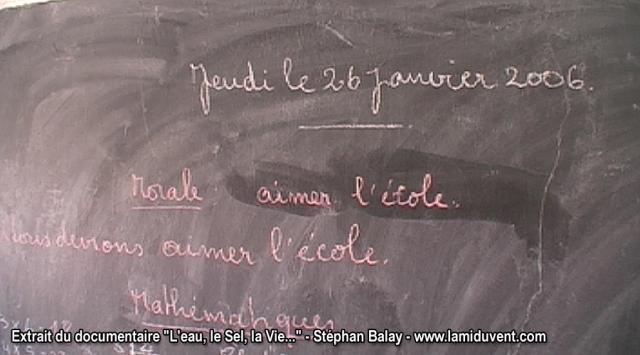 Jeudi le 26 janvier 2006.
Morale aimer l'école.
Nous devons aimer l'école.
Mathématiques
Extrait du documentaire "L'eau, le Sel, la Vie..." - Stéphan Balay - www.lamiduvent.com